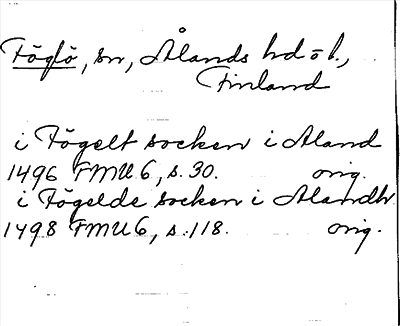 Föglö, sn, Ålands hd o l.,
Finland
i Fögelt socken i Aland
1496 FMU 6, s. 30. orig.
i Fögelde socken i Alandh
1498 FMU 6, s. 118. orig.